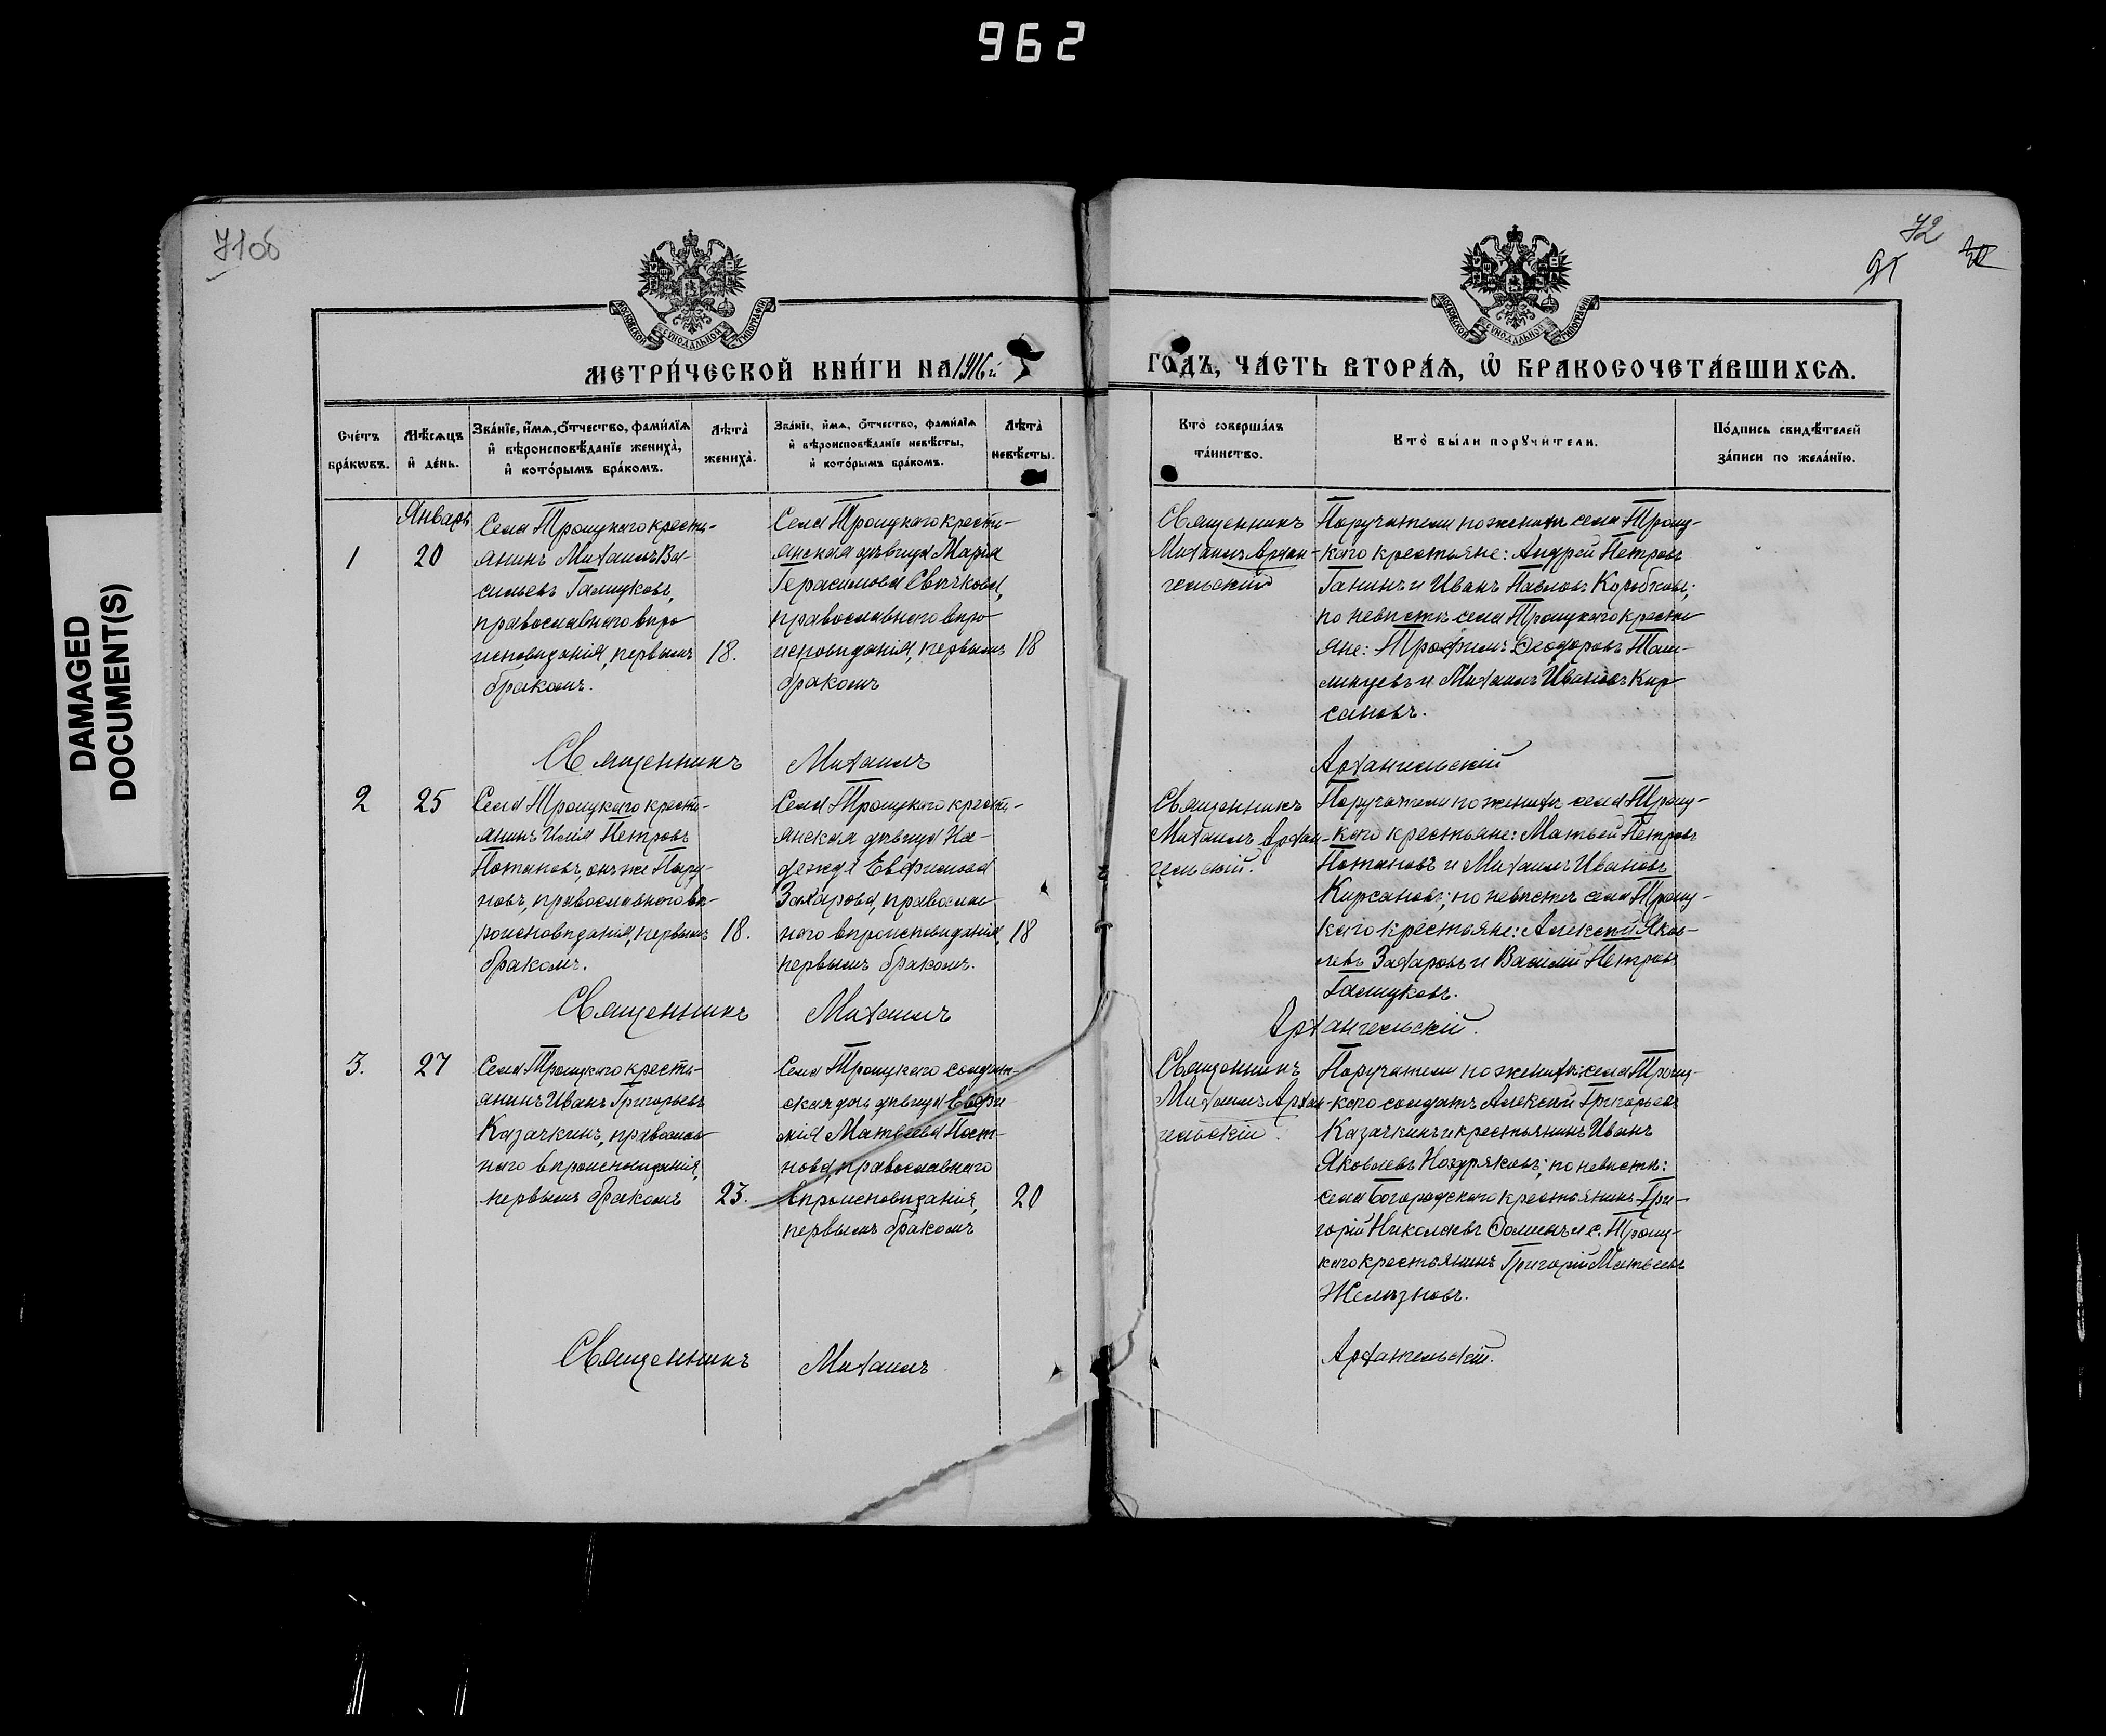 962
DAMAGED
DOCUMENT(S)
71об
72
91
30
МОСКОВСКОЙ СѴНОДАЛЬНОЙ ТИПОГРАФІИ
МОСКОВСКОЙ СѴНОДАЛЬНОЙ ТИПОГРАФІИ
МЕТРИ́ЧЕСКОЙ КНИ́ГИ НА 1916й
ГО́ДЪ, ЧА́СТЬ ВТОРА́Ѧ, Ѡ҆ БРАКОСОЧЕТА́ВШИХСѦ.
Сче́тъ
бра́кѡвъ.
Мѣ́сѧцъ
и҆ де́нь.
Зва́нїе, и҆́мѧ, ѻ҆́тчество, фами́лїѧ
и҆ вѣроисповѣ́данїе жениха̀,
и҆ кото́рымъ бра́комъ.
Лѣта̀
жениха̀.
Зва́нїе, и҆́мѧ, ѻ҆́тчество, фами́лїѧ
и҆ вѣроисповѣ́данїе невѣ́сты,
и҆ кото́рымъ бра́комъ.
Лѣта̀
невѣ́сты.
Кто̀ соверша́лъ
та́инство.
Кто̀ бы́ли порꙋчи́тели.
По́дпись свидѣ́телей
за́писи по жела́нїю.
Январь
1
20
Села Троицкаго кресть-
янинъ Михаилъ Ва-
сильевъ Галицковъ,
православнаго вѣро-
исповѣданія, первымъ
бракомъ.
18.
Села Троицкаго кресть-
янская дѣвица Марія
Герасимова Свѣчкова,
православнаго вѣро-
исповѣданія, первымъ
бракомъ
18
Священникъ
Михаилъ Архан-
гельскій
Поручители по женихѣ села Троиц-
каго крестьяне: Андрей Петровъ
Ганинъ и Иванъ Павловъ Коробковъ;
по невѣстѣ села Троицкаго кресть-
яне: Трофимъ Ѳеодоровъ
и Михаилъ Ивановъ Кир-
сановъ.
Священникъ Михаилъ Архангельскій
2
25
Села Троицкаго кресть-
янинъ Илія Петровъ
Потаповъ, онъ же
православнаго вѣ-
роисповѣданія, первымъ
бракомъ.
18.
Села Троицкаго кресть-
янская дѣвица На-
дежда Евфимова
Захарова, православ-
наго вѣроисповѣданія,
первымъ бракомъ.
18
Священникъ
Михаилъ Архан-
гельскій.
Поручители по женихѣ села Троиц-
каго крестьяне: Матвей Петровъ
Потаповъ и Михаилъ Ивановъ
Кирсановъ; по невѣстѣ села Троиц-
каго крестьяне: Алексей Яков-
левъ Захаровъ и Василій Петровъ
Галицковъ.
Священникъ Михаилъ Архангельскій.
3.
27
Села Троицкаго кресть-
янинъ Иванъ Григорьевъ
Казачкинъ, православ-
наго вѣроисповѣданія,
первымъ бракомъ
23.
Села Троицкаго солдат-
ская дочь дѣвица Евфи-
мія Матвеева Пост-
нова, православнаго
вѣроисповѣданія,
первымъ бракомъ
20
Священникъ
Михаилъ Архан-
гельскій.
Поручители по женихѣ: села Троиц-
каго солдатъ Алексей Григорьевъ
Казачкинъ и крестьянинъ Иванъ
Яковлевъ Ноздряковъ; по невѣстѣ:
села Богородскаго крестьянинъ Гри-
горій Николаевъ Ѳоминъ и с. Троиц-
каго крестьянинъ Григорій Матвеевъ
Желѣзновъ.
Священникъ Михаилъ Архангельскій.